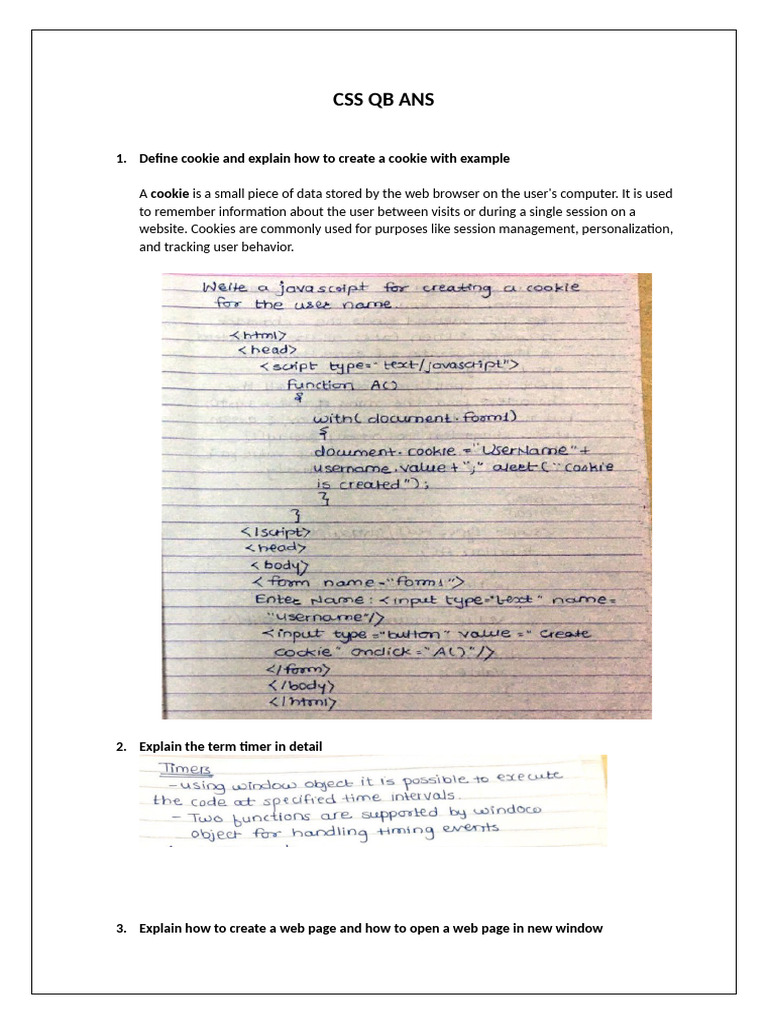 CSS QB ANS
1. Define cookie and explain how to create a cookie with example
A cookie is a small piece of data stored by the web browser on the user's computer. It is used
to remember information about the user between visits or during a single session on a
website. Cookies are commonly used for purposes like session management, personalization,
and tracking user behavior.
Write a javascript for creating a cookie
for the user name.
<html>
<head>
<script type="text/javascript">
function A()
{
with(document.form1)
{
document.cookie = "UserName"+
username.value + ";" alert("cookie
is created");
}
}
</script>
<head>
<body>
<form name="form1">
Enter Name: <input type="text" name=
"username"/>
<input type="button" value="create
cookie" onclick="A()"/>
</form>
</body>
</html>
2. Explain the term timer in detail
Timers
- using window object it is possible to execute
the code at specified time intervals.
- Two functions are supported by window
object for handling timing events
3. Explain how to create a web page and how to open a web page in new window